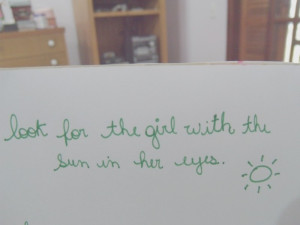 look for the girl with the
sun in her eyes.